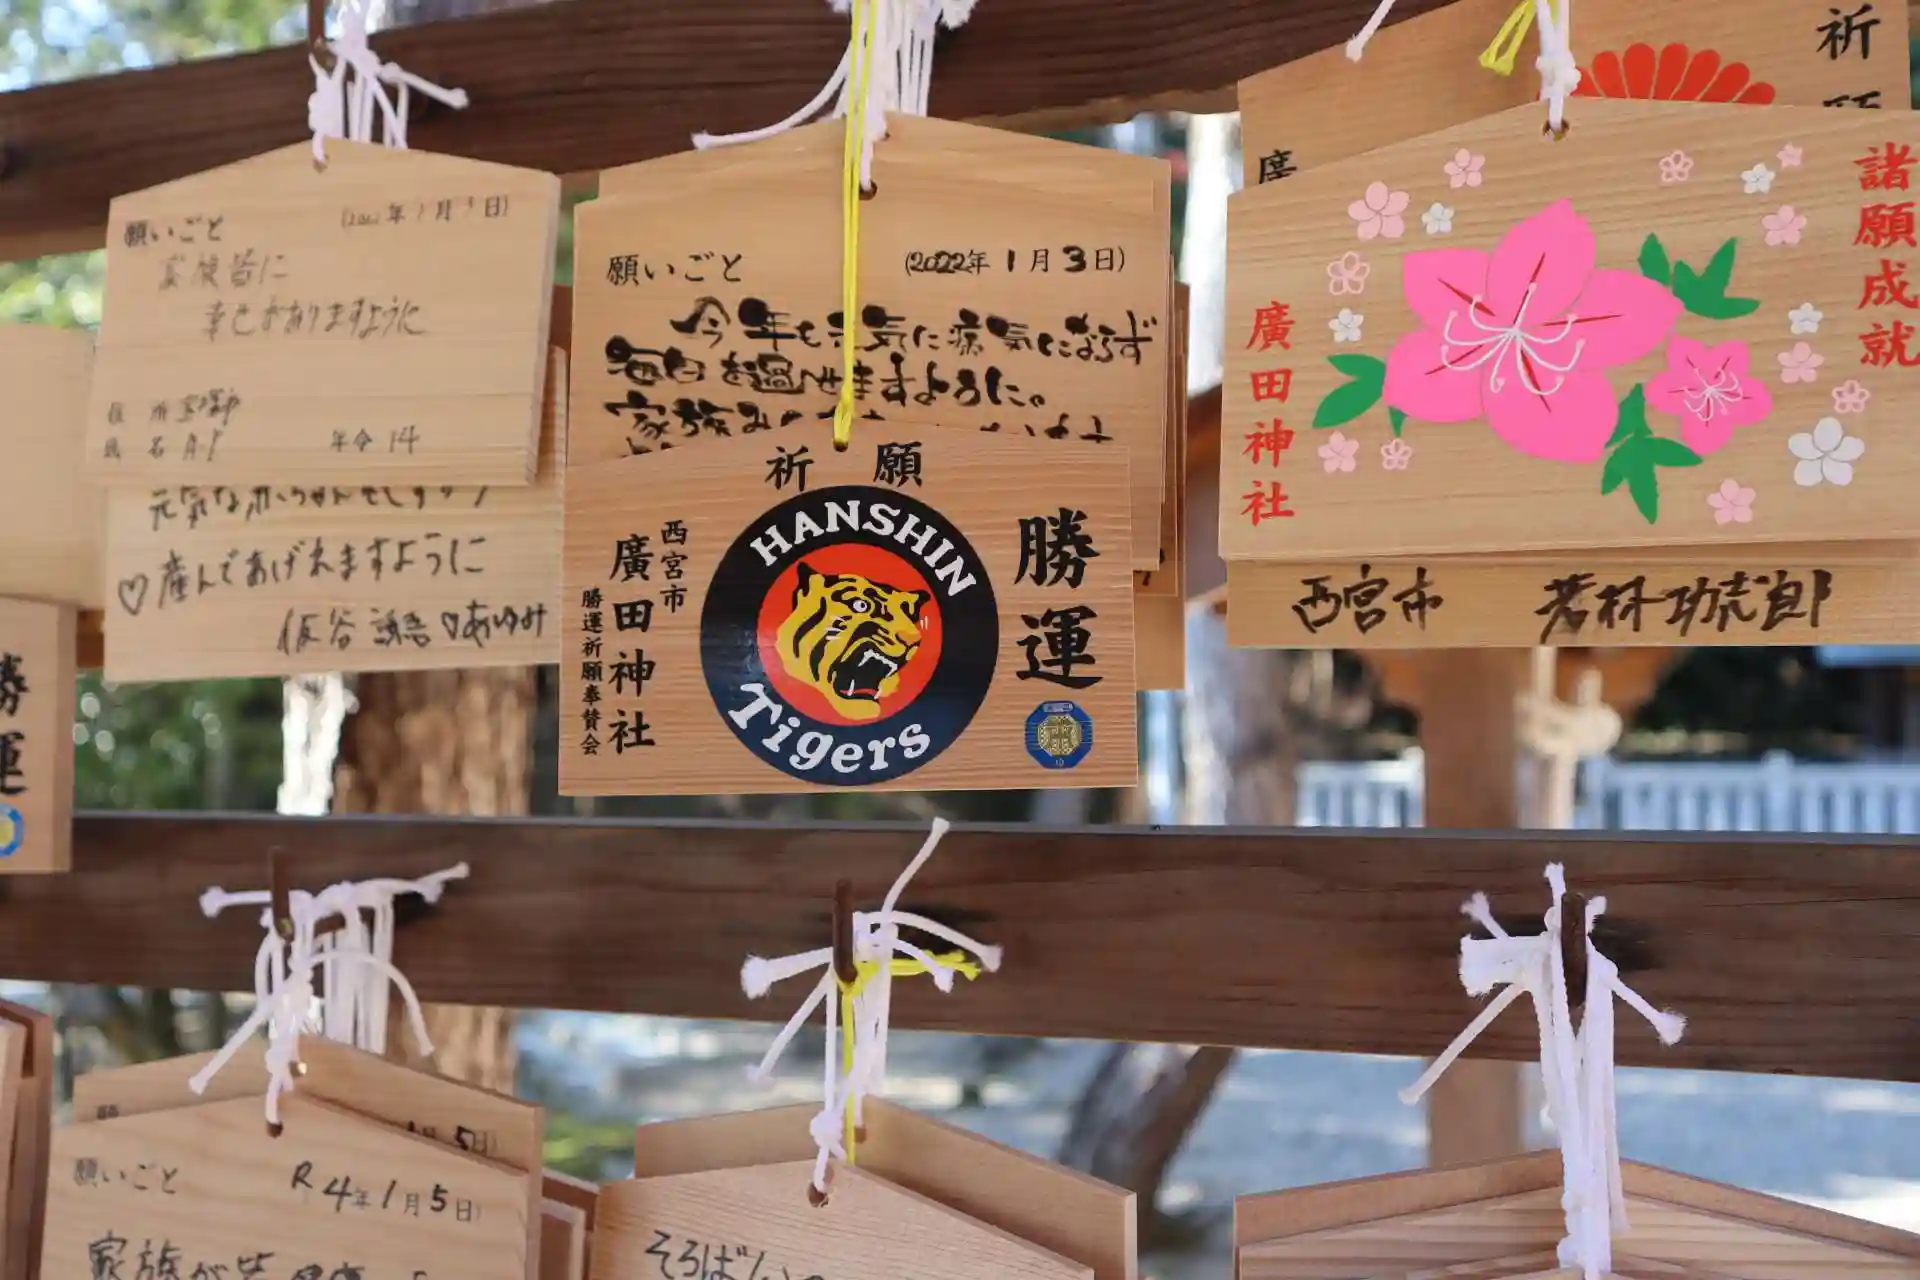 願いごと
年 月 日)
家族皆に
幸せがありますように
住 所
氏 名
年令 14
元気な赤ちゃん
♡産んであげれますように
♡あゆみ
願いごと
(2022年 1月 3日)
今年も元気に病気にならず
毎日を過せますように。
家族み
祈願
HANSHIN
Tigers
勝運
西宮市
廣田神社
勝運祈願奉賛会
祈
廣
諸願成就
廣田神社
西宮市 若林功志郎
勝運
5日)
願いごと
R4年1月5日)
家族が皆
そろばん